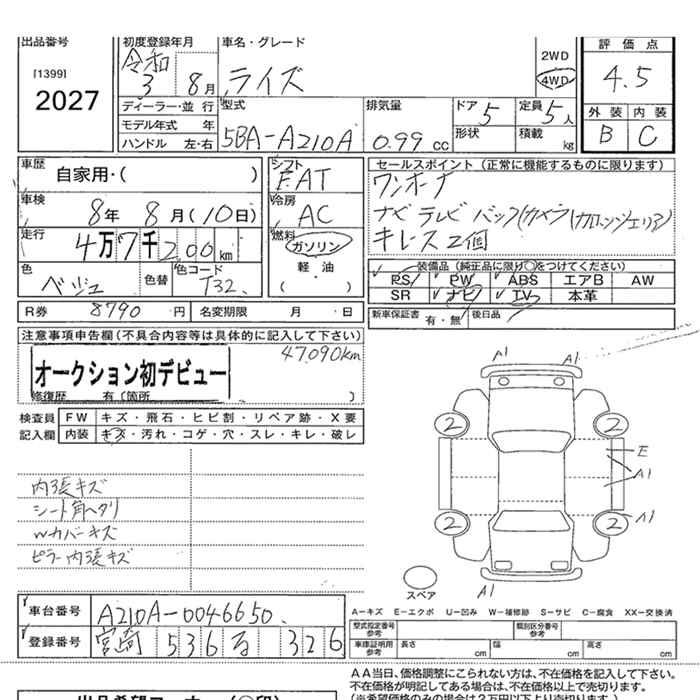 出品番号 初度登録年月 車名・グレード 評価点
[1399]
2027
令和
3 8月 ライズ 2WD 4WD 4.5
ディーラー・並行 型式 排気量 ドア 5 定員 5人 外装 内装
モデル年式 年 5BA-A210A 0.99cc B C
ハンドル 左・右 形状 積載 kg
車歴 自家用・( ) シフト FAT セールスポイント(正常に機能するものに限ります)
ワンオーナー
車検 8年 8月(10日) 冷房 AC ナビ テレビ バックカメラ
走行 4万7千200km 燃料 ガソリン キーレス2個
軽油
( )
色 ベージュ 色替 色コード T32. 装備品(純正品に限り○をつけてください)
PS PW ABS エアB AW
SR ナビ TV 本革
R券 8790円 名変期限 月 日 新車保証書 有・無 後日品
注意事項申告欄(不具合内容等は具体的に記入して下さい)
47,090km
オークション初デビュー
修復歴 有(箇所 )
検査員 FW キズ・飛石・ヒビ割・リペア跡・X要
記入欄 内装 キズ・汚れ・コゲ・穴・スレ・キレ・破レ
A1 A1
2 2
E
A1
2 2 A1
A1
内張キズ
シート角ヘタリ
Wカバーキズ
ピラー内張キズ
スペア
A-キズ E-エクボ U-凹み W-補修跡 S-サビ C-腐食 XX-交換済
車台番号 A210A-0046650.
型式指定番号 参考 類別区分番号 参考
登録番号 宮崎 536 る 326
車庫証明用 参考 長さ cm 幅 cm 高さ cm
AA当日、価格調整にこられない方は、不在価格を記入して下さい。
不在価格が明記してある場合は、不在価格以上で売切ります。